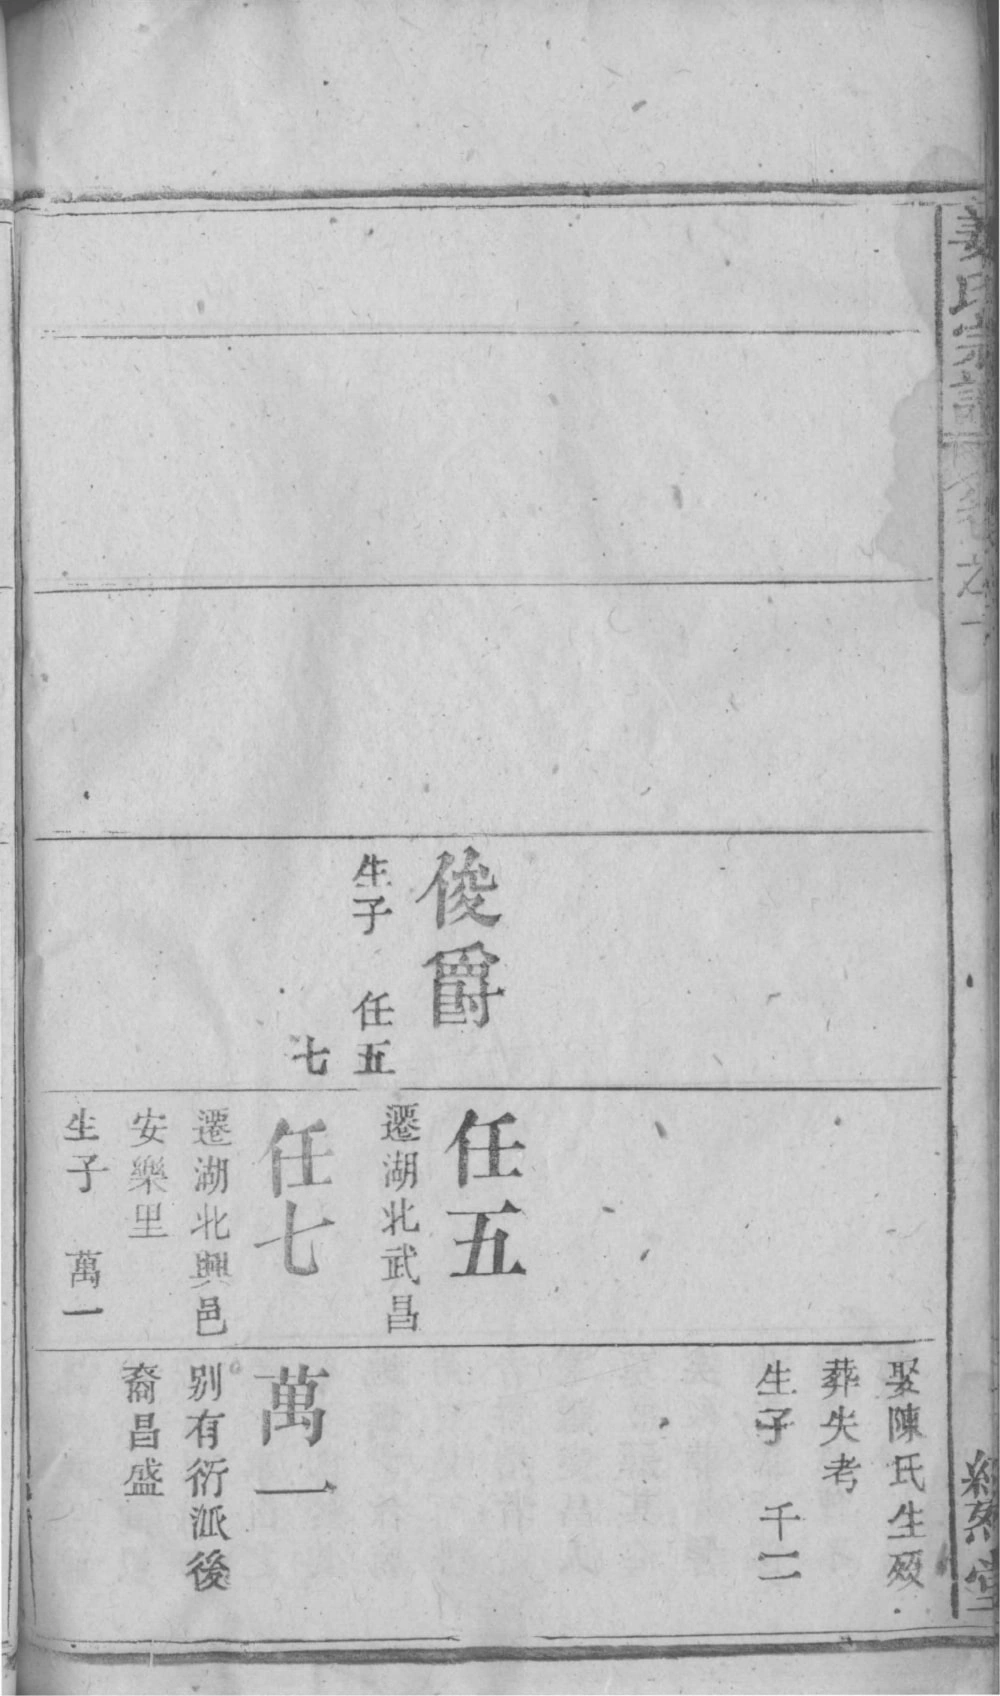 氏宗譜
卷之
堂
俊爵
生子　任五
七
任五
遷湖北武昌
任七
遷湖北興邑
安樂里
生子　萬一
娶陳氏生歿
葬失考
生子　千二
萬一
别有衍派後
裔昌盛